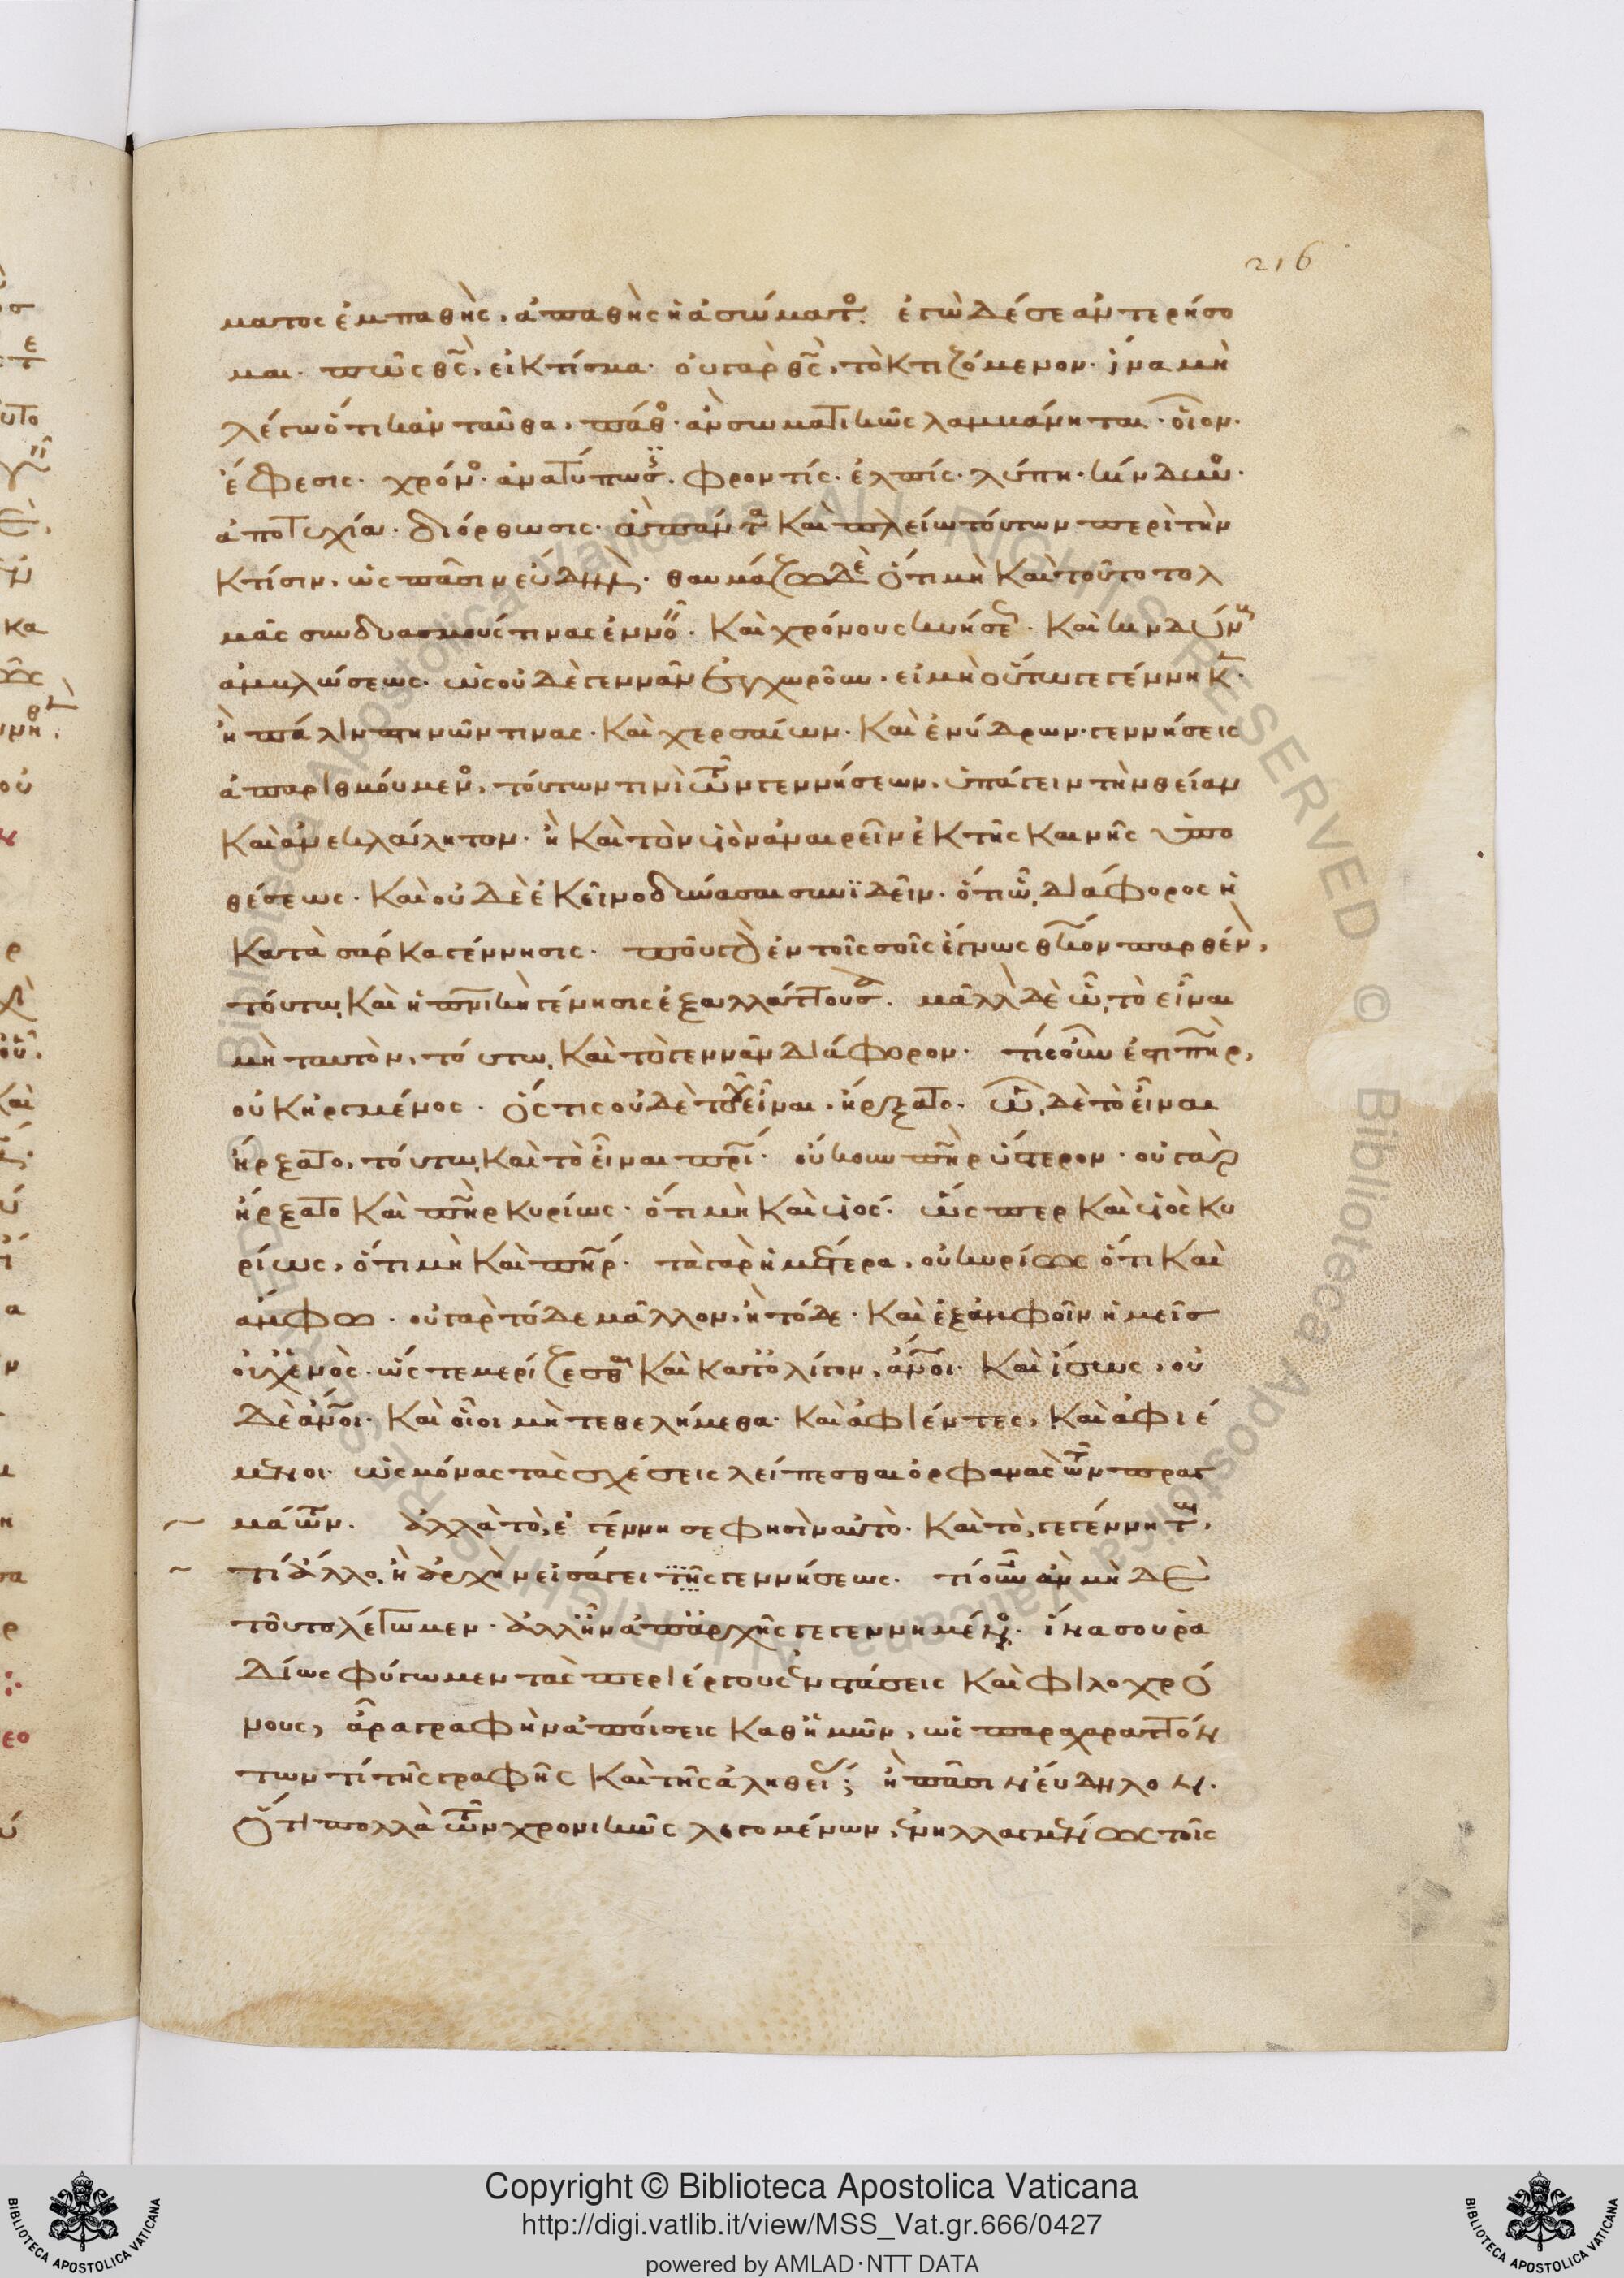 216
ματος ἐμπαθὴς, ἀπαθὴς ἡ ἀσώματος. ἐγὼ δέ σε ἀντερήσο
μαι. πῶς θς̀, εἰ κτίσμα. οὐ γὰρ θς̀, τὸ κτιζόμενον. ἵνα μὴ
λέγω ὅτι κἀνταῦθα, πάθος. ἂν σωματικῶς λαμβάνηται. οἷον.
ἔφεσις. χρόνος. ἀνατύπωσις. φροντίς. ἐλπίς. λύπη. κίνδυνος.
ἀποτυχία. διόρθωσις. ἃ πάντα καὶ πλείω τούτων περὶ τὴν
κτίσιν, ὡς πᾶσιν εὔδηλον. θαυμάζω δὲ ὅτι μὴ καὶ τοῦτο τολ
μᾷς συνδυασμούς τινας ἐννοεῖν. καὶ χρόνους κυήσεως. καὶ κινδύνους
ἀμβλώσεως. ὡς οὐδὲ γεννᾶν ἐγχωροῦν. εἰ μὴ οὕτω γεγέννηκε.
ἢ πάλιν πτηνῶν τινας. καὶ χερσαίων. καὶ ἐνύδρων. γεννήσεις
ἀπαριθμούμενος, τούτων τινὶ τῶν γεννήσεων, ὑπάγειν τὴν θείαν
καὶ ἀνεκλάλητον. ἢ καὶ τὸν υἱὸν ἀναιρεῖν ἐκ τῆς καινῆς ὑπο
θέσεως. καὶ οὐδὲ ἐκεῖνο δύνασαι συνϊδεῖν. ὅτι ᾧ, διάφορος ἡ
κατὰ σάρκα γέννησις. ποῦ γὰρ ἐν τοῖς σοῖς ἔγνως θκον παρθένον,
τούτω, καὶ ἡ πνικὴ γέννησις ἐξαλλάττουσα. μᾶλλον δὲ ᾧ, τὸ εἶναι
μὴ ταυτὸν, τούτω, καὶ τὸ γεννᾶν διάφορον. τίς οὖν ἐστι πηρ,
οὐκ ἠργμένος. ὅστις οὐδὲ τοῦ εἶναι, ἤρξατο. ᾧ, δὲ τὸ εἶναι
ἤρξατο, τούτω, καὶ τὸ εἶναι πρί. οὔκουν πηρ ὕστερον. οὐ γὰρ
ἤρξατο καὶ πηρ κυρίως. ὅτι μὴ καὶ υἱός. ὥσπερ καὶ υἱὸς κυ
ρίως, ὅτι μὴ καὶ πηρ. τὰ γὰρ ἡμέτερα, οὐ κυρίως ὅτι καὶ
ἄμφω. οὐ γὰρ τόδε μᾶλλον, ἢ τόδε. καὶ ἐξ ἀμφοῖν ἡμεῖς
οὐχ ἑνὸς. ὥστε μερίζεσθαι καὶ κατ' ὀλίγον, ἄνοι. καὶ ἴσως, οὐ
δὲ ἄνοι. καὶ οἷοι μὴ τεθελήμεθα. καὶ ἀφιέντες, καὶ ἀφιέ
μενοι. ὡς μόνας τὰς σχέσεις λείπεσθαι ὀρφανὰς τῶν πραγ
μάτων. ἀλλὰ τὸ, ἐγέννησε φησὶν αὐτὸ. καὶ τὸ, γεγέννηται,
τί ἄλλο, ἢ ἀρχὴν εἰσάγει τῆς γεννήσεως. τί οὖν ἂν μηδὲ
τοῦτο λέγωμεν. ἀλλ' ἦν ἀπ' ἀρχῆς γεγεννημένος. ἵνα σου ρα
δίως φύγωμεν τὰς περιέργους ἐνστάσεις καὶ φιλοχρό
νους, ἆρα γραφὴν ἀποίσεις καθ' ἡμῶν, ὡς παραχαραττόν
των τί τῆς γραφῆς καὶ τῆς ἀληθείας; ἢ πᾶσιν εὔδηλον.
ὅτι πολλὰ τῶν χρονικῶς λεγομένων, ἐνηλλαγμένως τοῖς
Copyright © Biblioteca Apostolica Vaticana
http://digi.vatlib.it/view/MSS_Vat.gr.666/0427
powered by AMLAD·NTT DATA